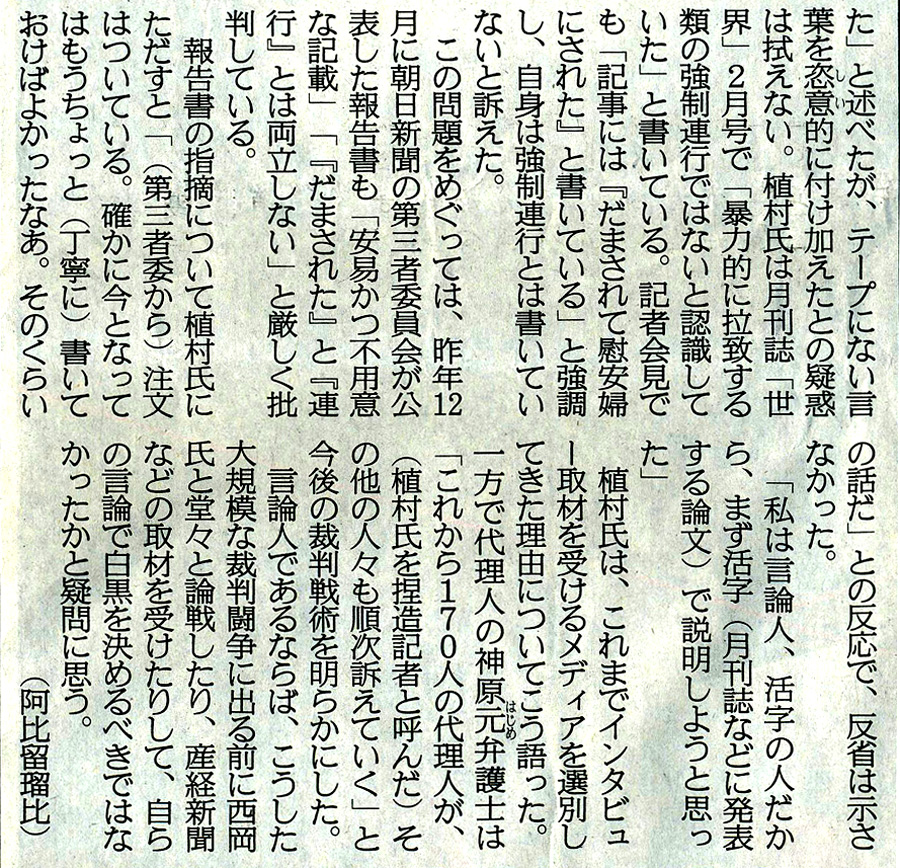 た」と述べたが、テープにない言
葉を恣意的に付け加えたとの疑惑
は拭えない。植村氏は月刊誌「世
界」2月号で「暴力的に拉致する
類の強制連行ではないと認識して
いた」と書いている。記者会見で
も「記事には『だまされて慰安婦
にされた』と書いている」と強調
し、自身は強制連行とは書いてい
ないと訴えた。
この問題をめぐっては、昨年12
月に朝日新聞の第三者委員会が公
表した報告書も「安易かつ不用意
な記載」「『だまされた』と『連
行』とは両立しない」と厳しく批
判している。
報告書の指摘について植村氏に
ただすと「(第三者委から)注文
はついている。確かに今となって
はもうちょっと(丁寧に)書いて
おけばよかったなあ。そのくらい
の話だ」との反応で、反省は示さ
なかった。
「私は言論人、活字の人だか
ら、まず活字(月刊誌などに発表
する論文)で説明しようと思っ
た」
植村氏は、これまでインタビュ
ー取材を受けるメディアを選別し
てきた理由についてこう語った。
一方で代理人の神原元弁護士は
「これから170人の代理人が、
(植村氏を捏造記者と呼んだ)そ
の他の人々も順次訴えていく」と
今後の裁判戦術を明らかにした。
言論人であるならば、こうした
大規模な裁判闘争に出る前に西岡
氏と堂々と論戦したり、産経新聞
などの取材を受けたりして、自ら
の言論で白黒を決めるべきではな
かったかと疑問に思う。
(阿比留瑠比)
しい
はじめ